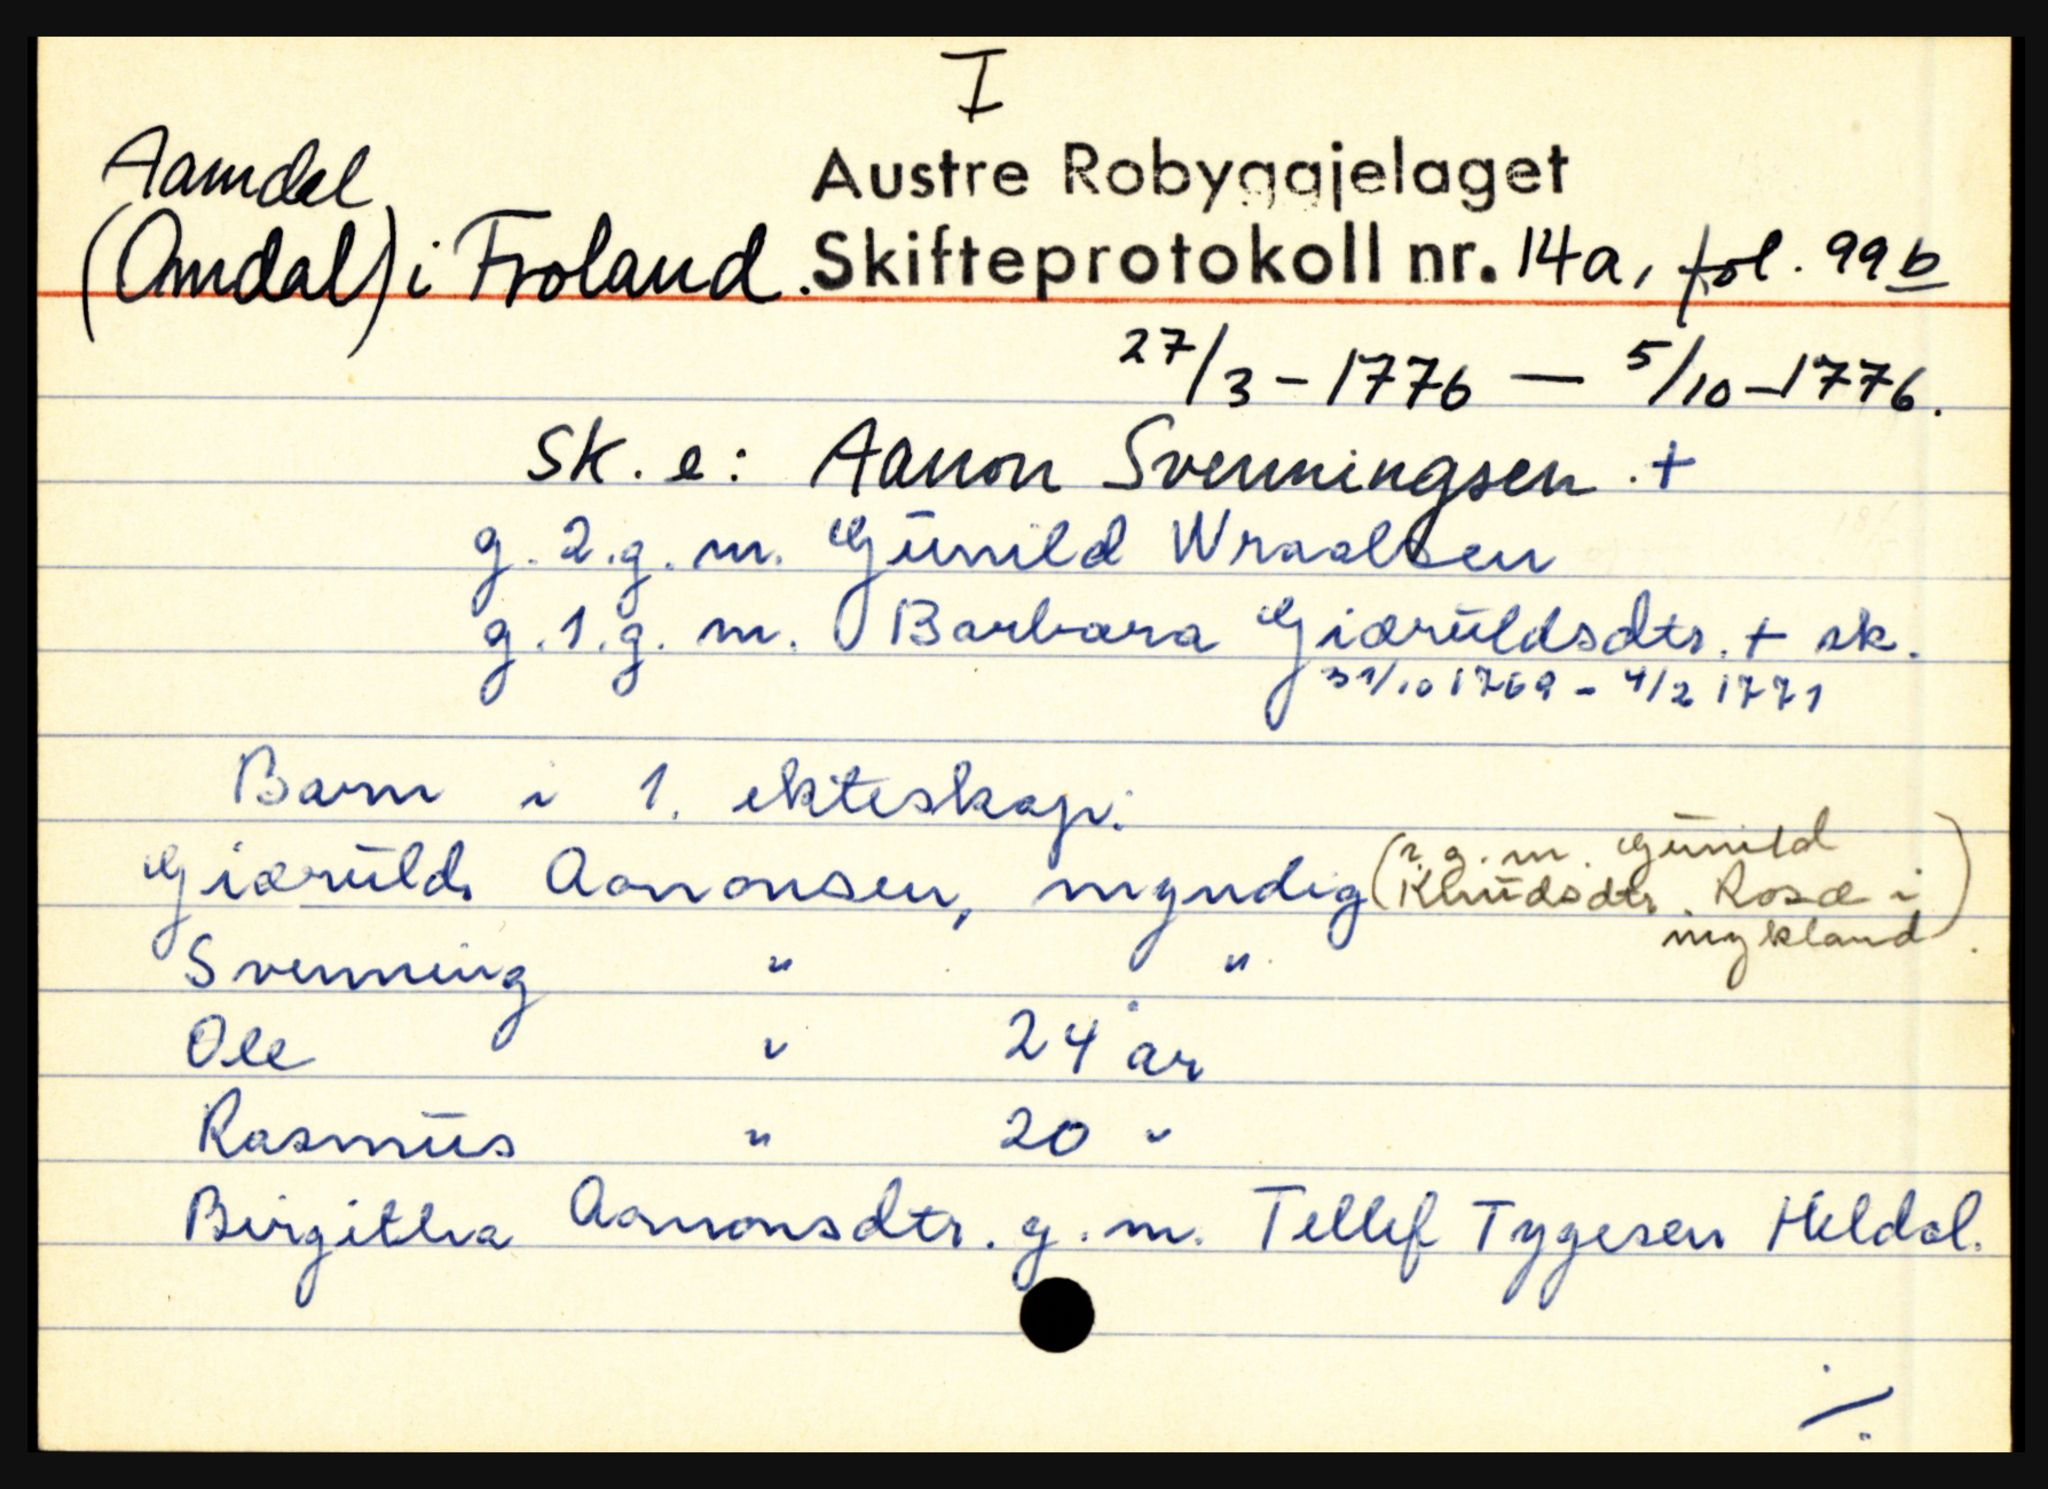 I
Aamdal Austre Robyggjelaget
(Omdal) i Froland. Skifteprotokoll nr. 14a, fol. 99b
27/3-1776 — 5/10-1776.
Sk. e: Aanon Svenningsen. +
g. 2. g. m. Gunild Wraalsen
g. 1. g. m. Barbara Giæruldsdtr. + sk.
31/10 1769 - 4/2 1771
Barn i 1. ekteskap:
Giæruld Aanonsen, myndig (g. m. Gunild
Knudsdtr. Rosæ i
mykland)
Svenning " "
Ole " 24 år
Rasmus " 20 "
Birgitha Aanonsdtr. g. m. Tellef Tygesen Heldal.
./.